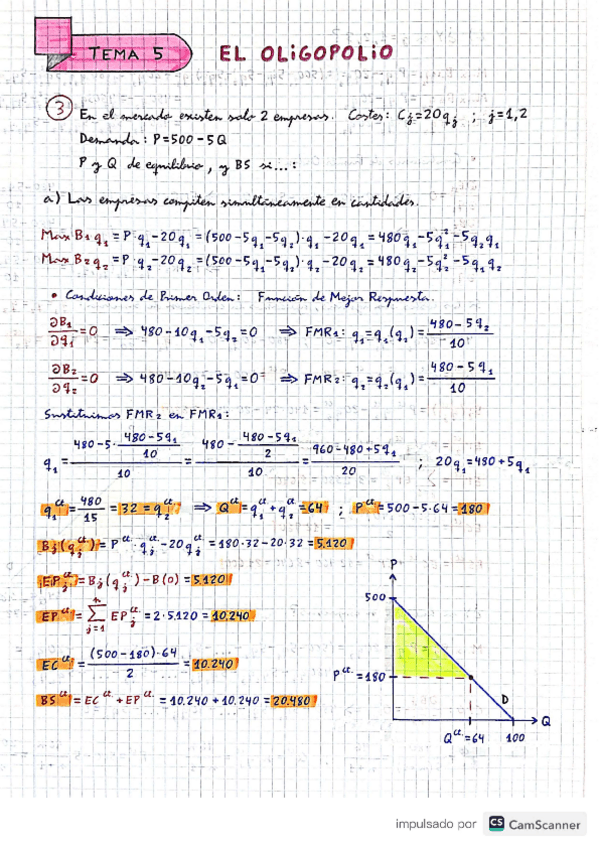 TEMA 5 EL OLIGOPOLIO
③ En el mercado existen solo 2 empresas. Costes: Cj=20qj ; j=1,2
Demanda: P=500-5Q
P y Q de equilibrio, y BS si...:
a) Las empresas compiten simultáneamente en cantidades.
Max B1 q1 = P·q1-20q1 = (500-5q1-5q2)·q1-20q1 = 480q1-5q1²-5q2q1
Max B2 q2 = P·q2-20q2 = (500-5q1-5q2)·q2-20q2 = 480q2-5q2²-5q1q2
• Condiciones de Primer Orden: Función de Mejor Respuesta.
∂B1/∂q1=0 ⇒ 480-10q1-5q2=0 ⇒ FMR1: q1=q1(q2)=(480-5q2)/10
∂B2/∂q2=0 ⇒ 480-10q2-5q1=0 ⇒ FMR2: q2=q2(q1)=(480-5q1)/10
Sustituimos FMR2 en FMR1:
q1=(480-5·(480-5q1)/10)/10=(480-(480-5q1)/2)/10=(960-480+5q1)/20 ; 20q1=480+5q1
q1^ct=480/15=32=q2^ct ⇒ Q^ct=q1^ct+q2^ct=64 ; P^ct=500-5·64=180
Bj(qj^ct)=P^ct·qj^ct-20qj^ct=180·32-20·32=5.120
EPj^ct=Bj(qj^ct)-B(0)=5.120
EP^ct=∑ j=1 n EPj^ct=2·5.120=10.240
EC^ct=(500-180)·64/2=10.240
BS^ct=EC^ct+EP^ct=10.240+10.240=20.480
P
500
P^ct=180
D
Q
Q^ct=64 100
impulsado por CS CamScanner